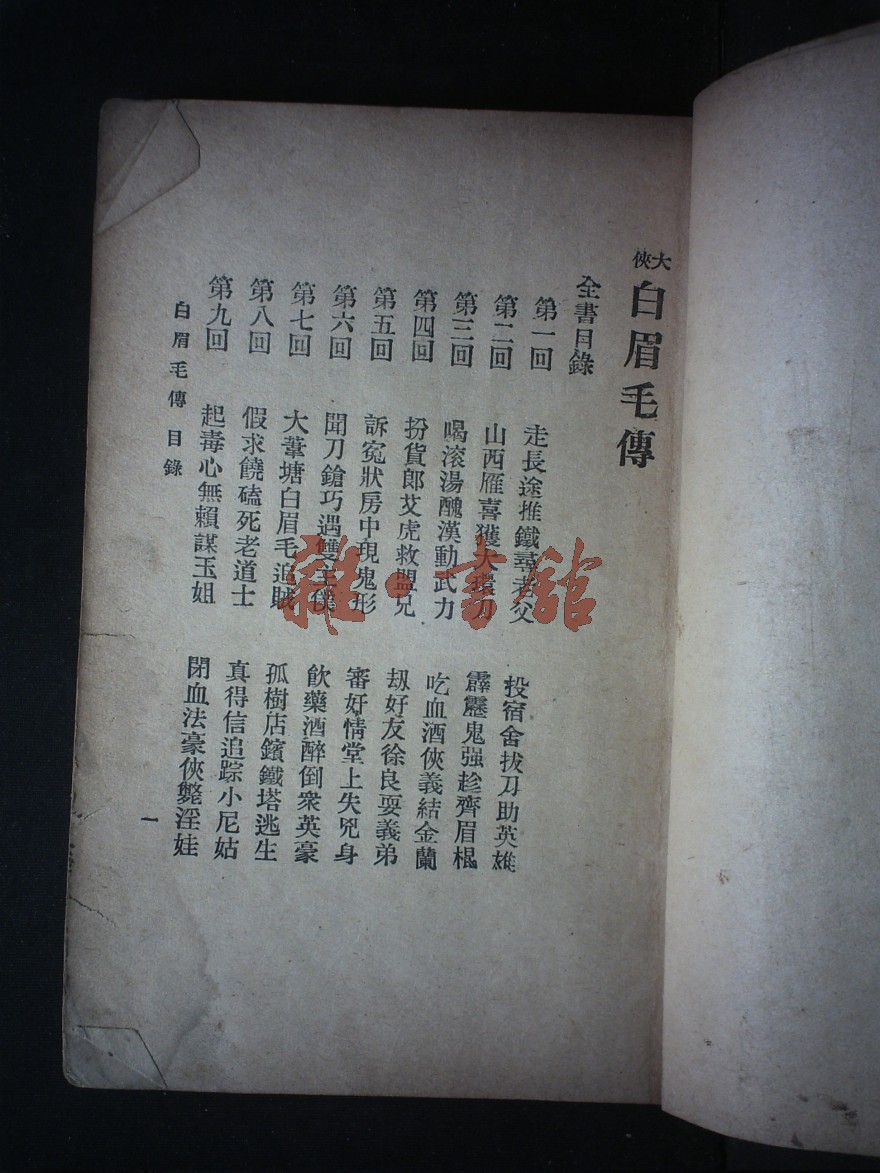 大俠
白眉毛傳
全書目錄
第一回 走長途推鐵尋老父 投宿舍拔刀助英雄
第二回 山西雁喜獲大環刀 霹靂鬼强趁齊眉棍
第三回 喝滚湯醜漢動武力 吃血酒俠義結金蘭
第四回 扮貨郎艾虎救盟兄 刼好友徐良耍義弟
第五回 訴冤狀房中現鬼形 審奸情堂上失兇身
第六回 聞刀鎗巧遇雙主僕 飲藥酒醉倒衆英豪
第七回 大葦塘白眉毛追賊 孤樹店鑌鐵塔逃生
第八回 假求饒磕死老道士 真得信追踪小尼姑
第九回 起毒心無賴謀玉姐 閉血法豪俠斃淫娃
白眉毛傳 目錄
一
雜·書舘